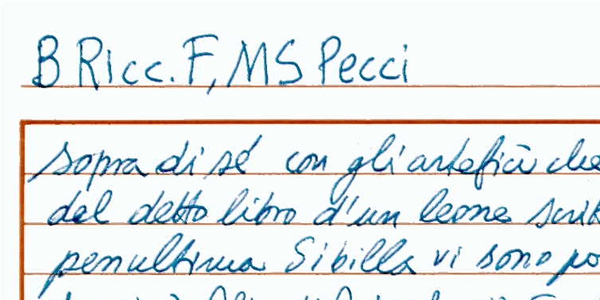 B Ricc. F, MS Pecci
sopra di sé con gli artefici che
del detto libro d'un leone
penultima Sibilla vi sono